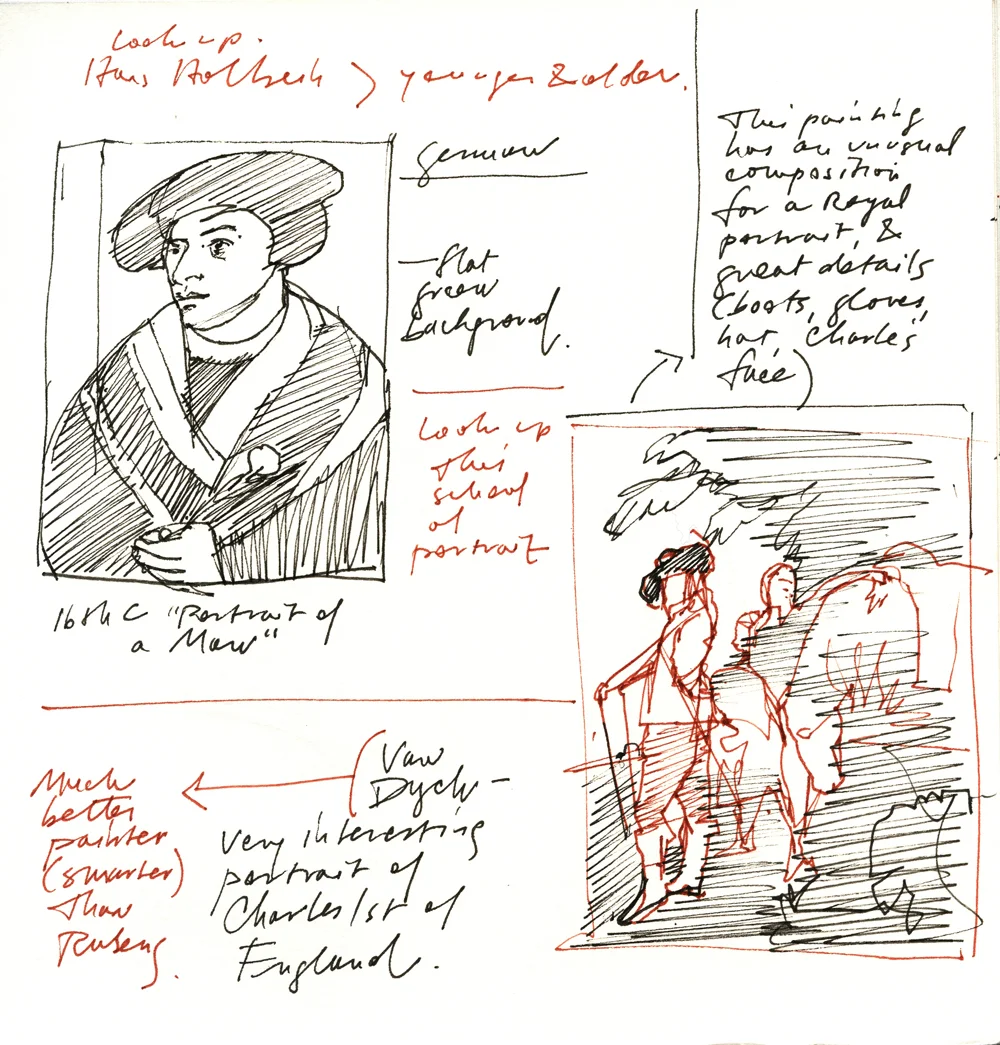 Look up.
Hans Holbein > younger & older.
German
— flat
green
background.
Look up
this
school
of
portrait
16th C "Portrait of
a Man"
This painting
has an unusual
composition
for a Royal
portrait, &
great details
(boots, gloves,
hat, Charles'
face)
Van
Dyck —
very interesting
portrait of
Charles 1st of
England.
Much
better
painter
(smarter)
than
Rubens.